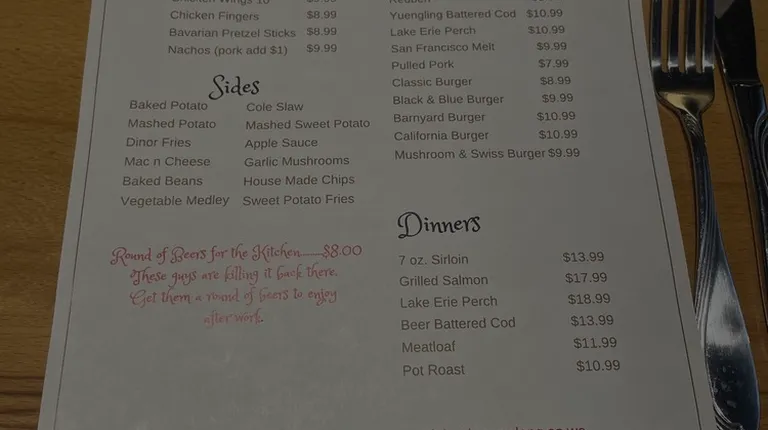 Chicken Wings 10
Chicken Fingers $8.99
Bavarian Pretzel Sticks $8.99
Nachos (pork add $1) $9.99
Sides
Baked Potato Cole Slaw
Mashed Potato Mashed Sweet Potato
Dinor Fries Apple Sauce
Mac n Cheese Garlic Mushrooms
Baked Beans House Made Chips
Vegetable Medley Sweet Potato Fries
Round of Beers for the Kitchen.......$8.00
These guys are killing it back there.
Get them a round of beers to enjoy
after work.
Reuben
Yuengling Battered Cod $10.99
Lake Erie Perch $10.99
San Francisco Melt $9.99
Pulled Pork $7.99
Classic Burger $8.99
Black & Blue Burger $9.99
Barnyard Burger $10.99
California Burger $10.99
Mushroom & Swiss Burger $9.99
Dinners
7 oz. Sirloin $13.99
Grilled Salmon $17.99
Lake Erie Perch $18.99
Beer Battered Cod $13.99
Meatloaf $11.99
Pot Roast $10.99